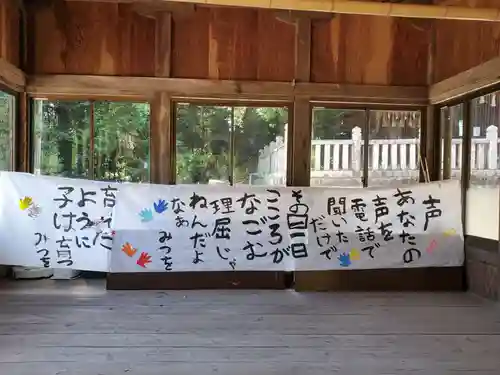 声
あなたの
声を
電話で
聞いた
だけで
その日一日
こころが
なごむ
理屈じゃ
ねんだよ
なぁ
みつを
育てた
ように
子は育つ
みつを